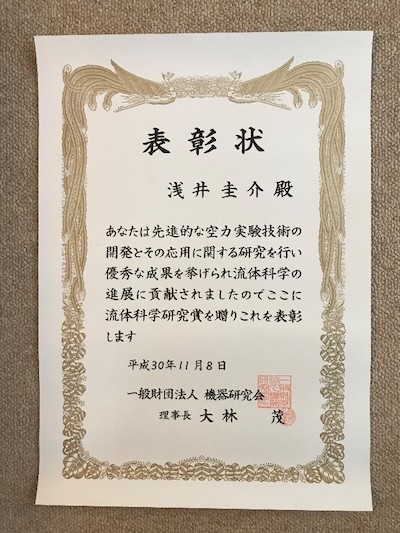 表彰状
浅井圭介殿
あなたは先進的な空力実験技術の
開発とその応用に関する研究を行い
優秀な成果を挙げられ流体科学の
進展に貢献されましたのでここに
流体科学研究賞を贈りこれを表彰
します
平成30年11月8日
一般財団法人 機器研究会
理事長 大林 茂